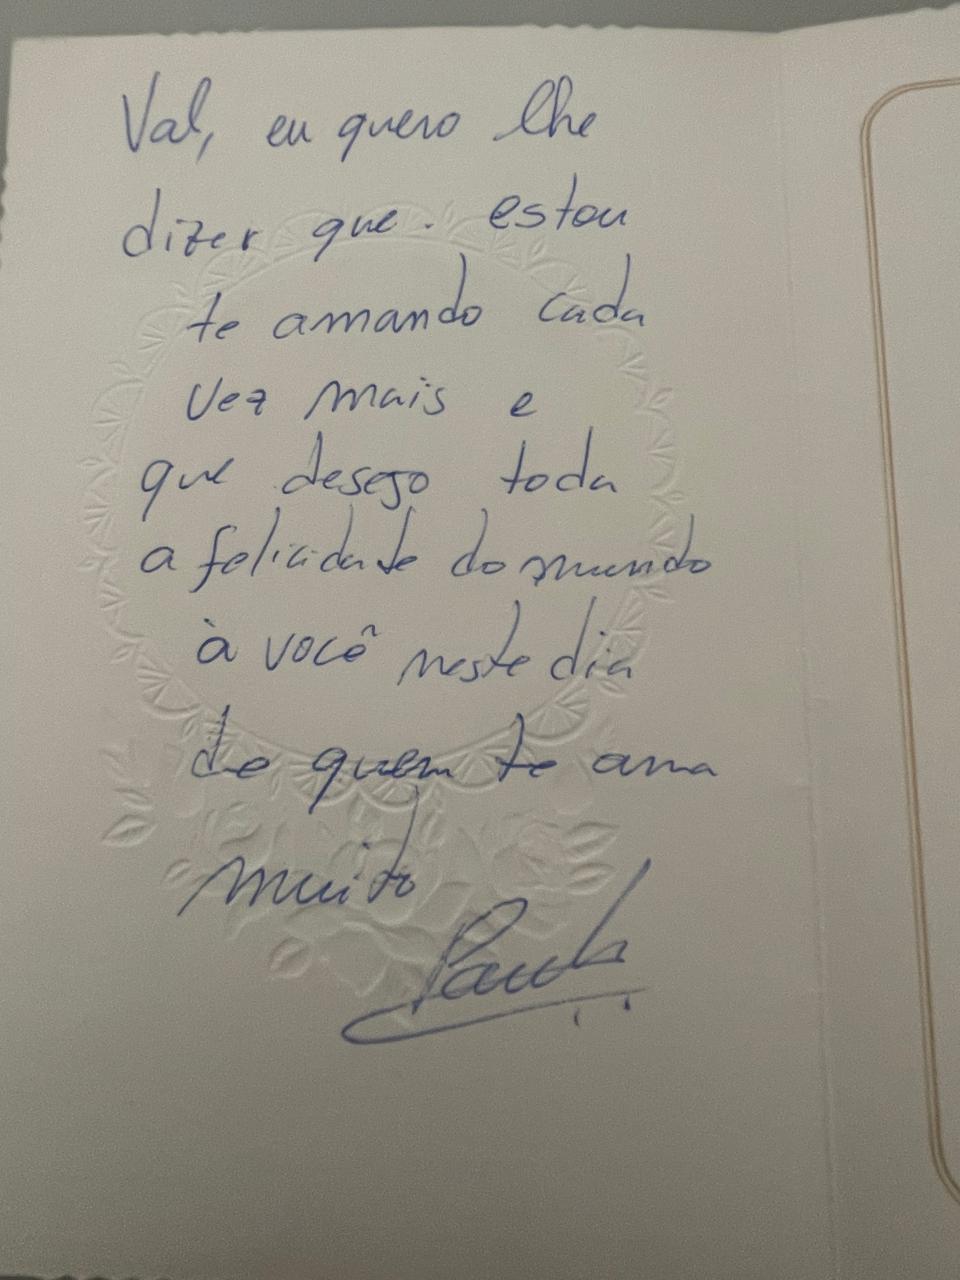 Val, eu quero lhe
dizer que. estou
te amando cada
vez mais e
que desejo toda
a felicidade do mundo
à você neste dia
de quem te ama
muito